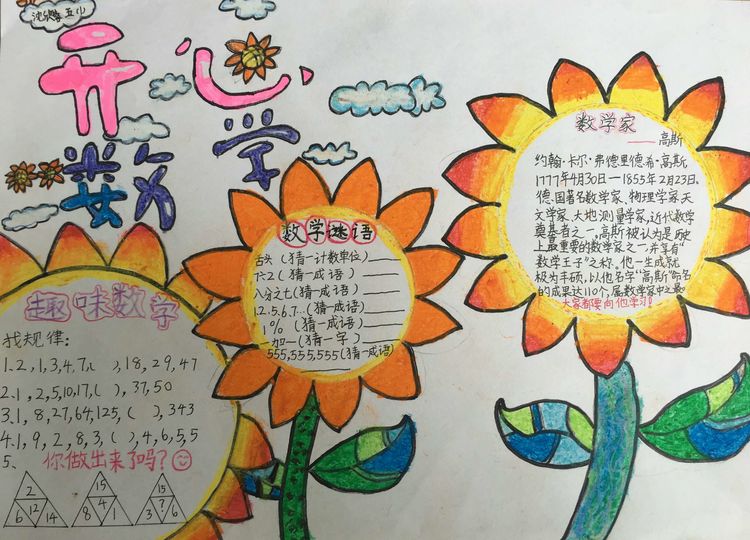 沈
五(1)
开心
数学
趣味数学
找规律:
1.2,1,3,4,7,( ),18,29,47
2.1,2,5,10,17,( ),37,50
3.1,8,27,64,125,( ),343
4.1,9,2,8,3,( ),4,6,5,5
5、 你做出来了吗?
2
6 12 14
15
8 4 1
15
3 ? 6
数学谜语
舌头(猜一计数单位)
(猜一成语)
八分之七(猜一成语)
1.2.5.6.7...(猜一成语)
1%(猜一成语)
一加一(猜一字)
555,555,555(猜一成语)
数学家
——高斯
约翰·卡尔·弗德里德希·高斯
1777年4月30日—1855年2月23日、
德国著名数学家、物理学家、天
文学家、大地测量学家,近代数学
奠基者之一,高斯被认为是历史
上最重要的数学家之一,并享有“
数学王子”之称,他一生成就
极为丰硕,以他名字“高斯”命名
的成果达110个,属数学家中之最
大家都要向他学习!